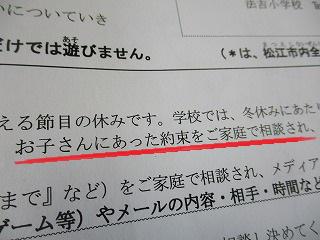 法吉小学校
いについていき
だけでは遊びません。
あそ
(*は、松江市内全
まつえしない
える節目の休みです。学校では、冬休みにあた
お子さんにあった約束をご家庭で相談され、
まで』など）をご家庭で相談され、メディア
ゲーム等）やメールの内容・相手・時間など